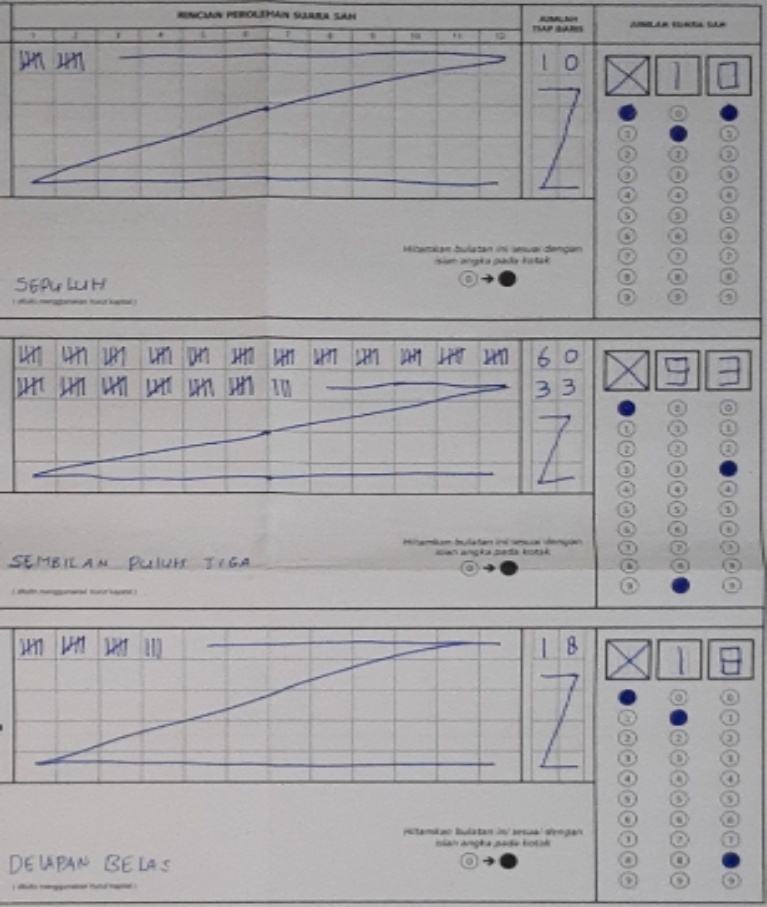 RINCIAN PEROLEHAN SUARA SAH
JUMLAH TIAP BARIS
JUMLAH SUARA SAH
1 2 3 4 5 6 7 8 9 10 11 12
1 0
X 1 0
0 1 2 3 4 5 6 7 8 9
Hitamkan bulatan ini sesuai dengan
isian angka pada kotak
0 → ●
SEPULUH
(ditulis menggunakan huruf kapital)
6 0
3 3
X 9 3
0 1 2 3 4 5 6 7 8 9
Hitamkan bulatan ini sesuai dengan
isian angka pada kotak
0 → ●
SEMBILAN PULUH TIGA
(ditulis menggunakan huruf kapital)
1 8
X 1 8
0 1 2 3 4 5 6 7 8 9
Hitamkan bulatan ini sesuai dengan
isian angka pada kotak
0 → ●
DELAPAN BELAS
(ditulis menggunakan huruf kapital)